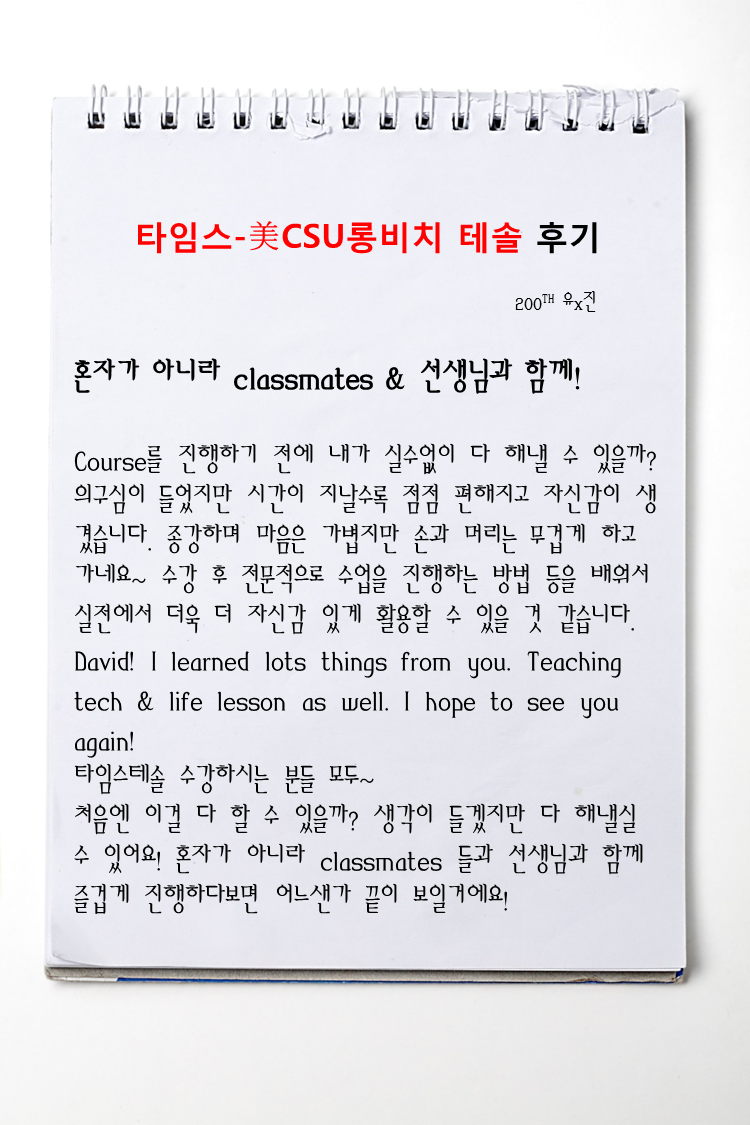 타임스-美CSU롱비치 테솔 후기
200TH 유x진
혼자가 아니라 classmates & 선생님과 함께!
Course를 진행하기 전에 내가 실수없이 다 해낼 수 있을까?
의구심이 들었지만 시간이 지날수록 점점 편해지고 자신감이 생
겼습니다. 종강하며 마음은 가볍지만 손과 머리는 무겁게 하고
가네요~ 수강 후 전문적으로 수업을 진행하는 방법 등을 배워서
실전에서 더욱 더 자신감 있게 활용할 수 있을 것 같습니다.
David! I learned lots things from you. Teaching
tech & life lesson as well. I hope to see you
again!
타임스테솔 수강하시는 분들 모두~
처음엔 이걸 다 할 수 있을까? 생각이 들겠지만 다 해낼실
수 있어요! 혼자가 아니라 classmates 들과 선생님과 함께
즐겁게 진행하다보면 어느샌가 끝이 보일거에요!